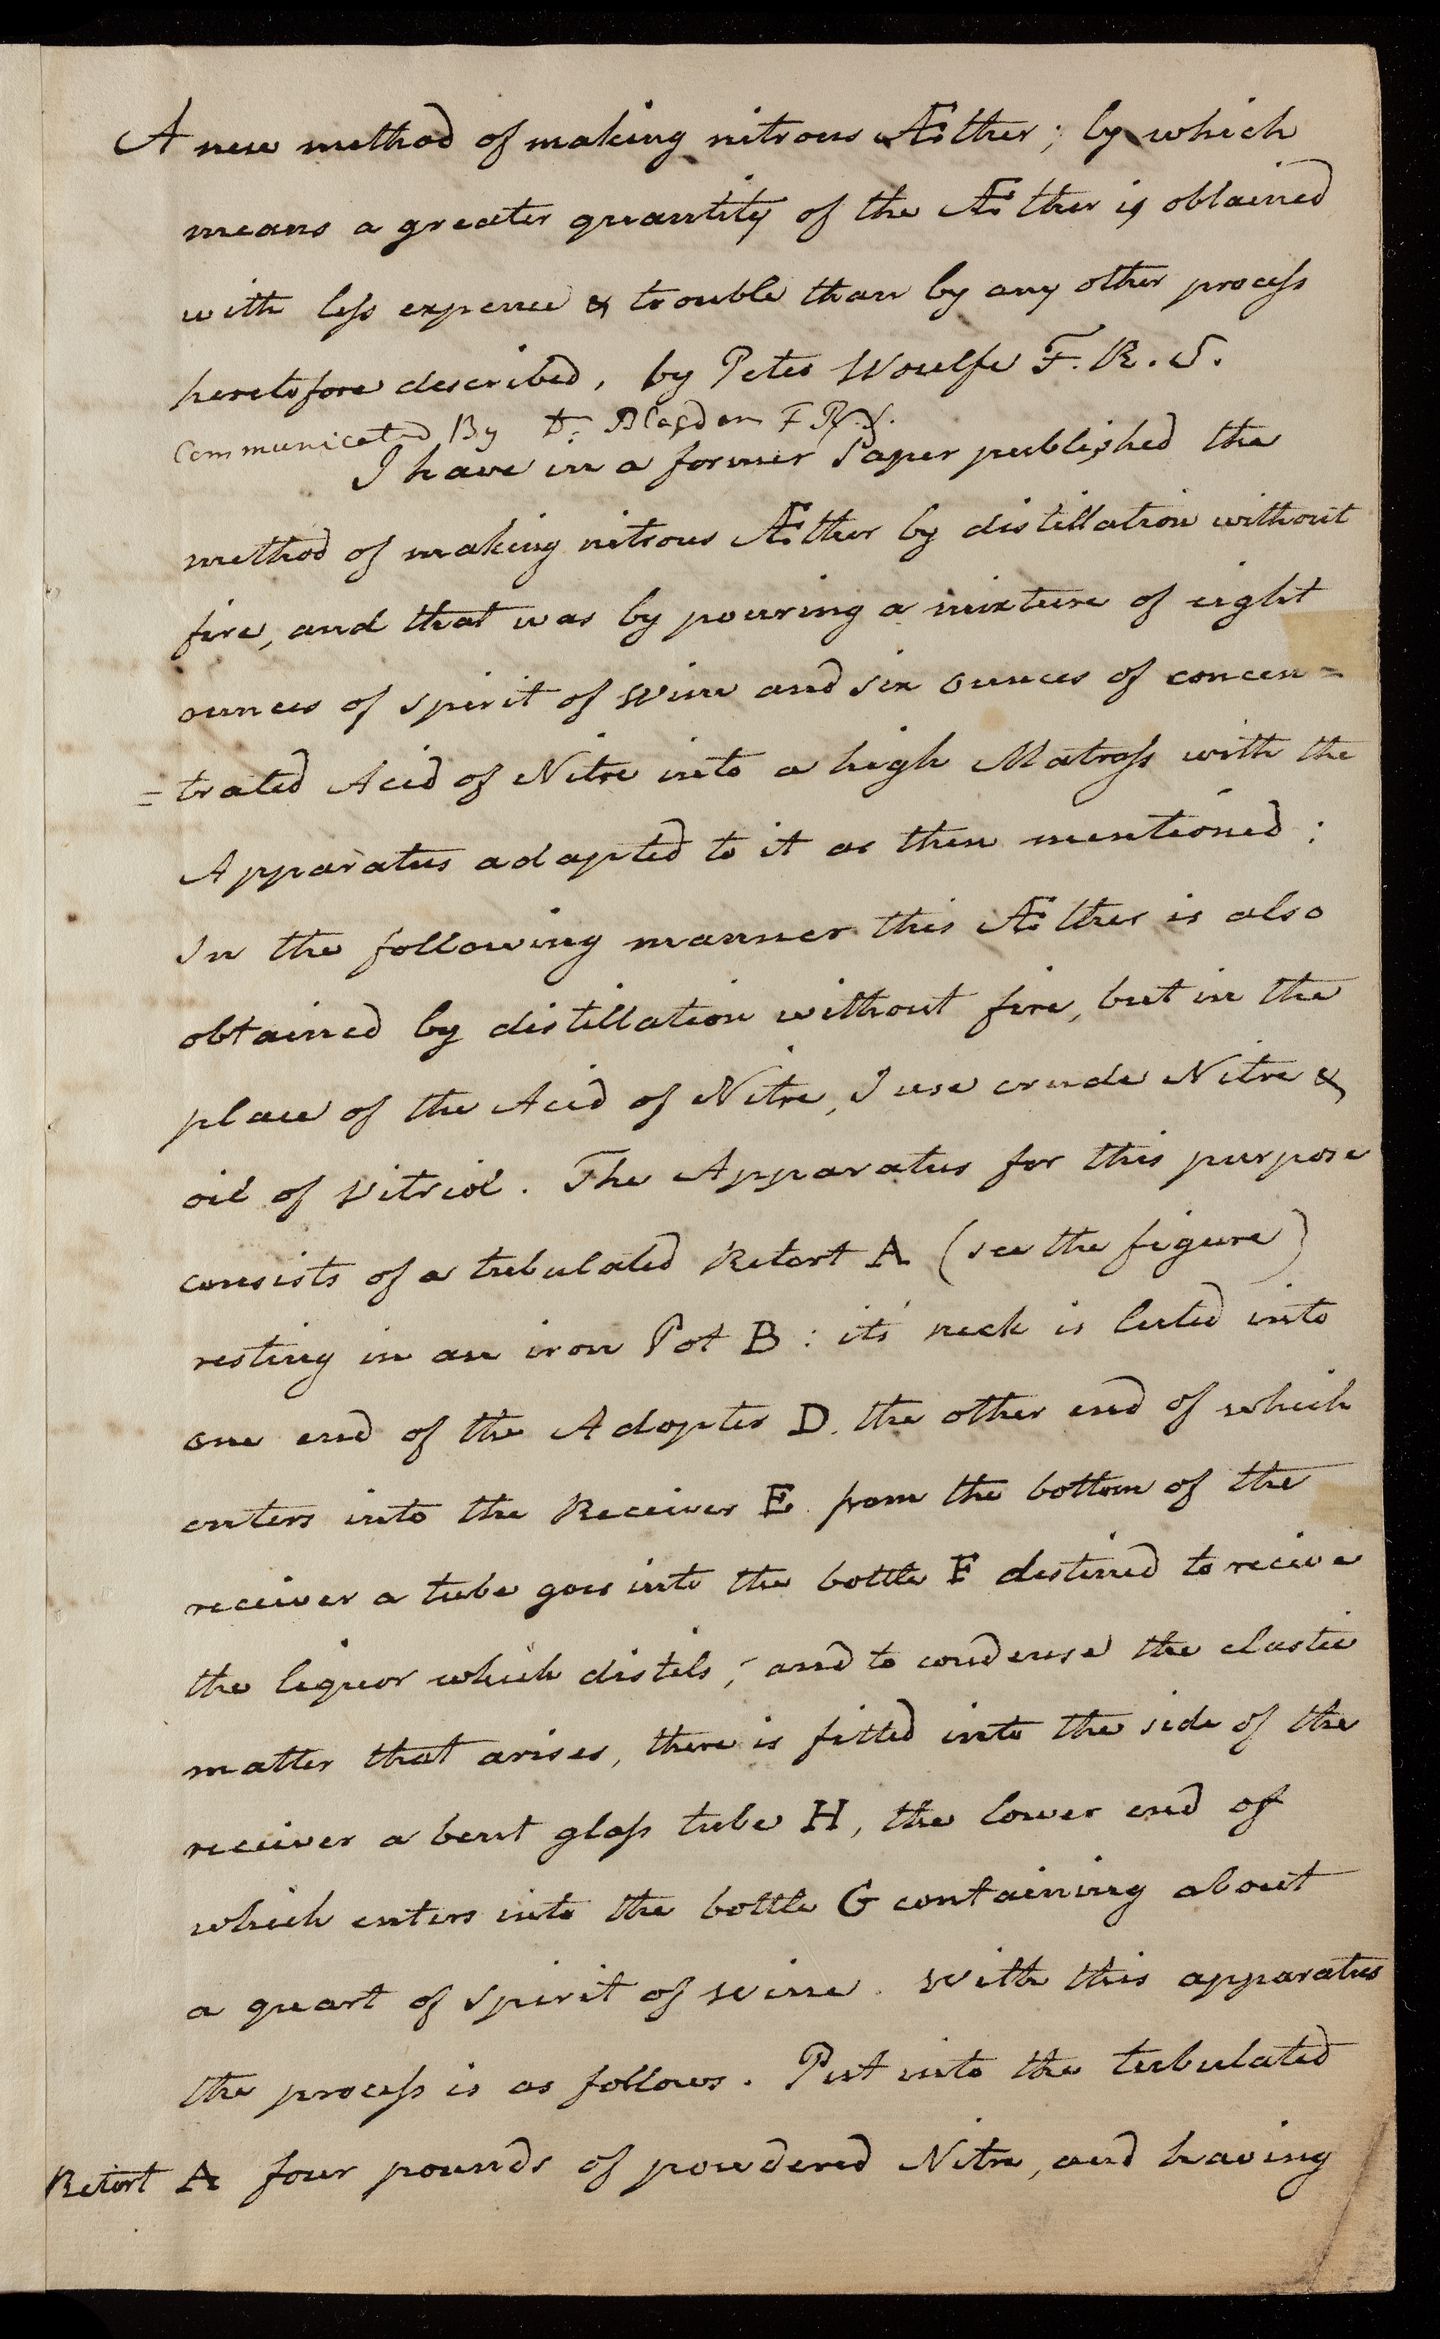 A new method of making nitrous Æther; by which
means a greater quantity of the Æther is obtained
with less expence & trouble than by any other process
heretofore described, by Peter Woulfe F.R.S.
Communicated By Dr. Blagden F.R.S.
I have in a former Paper published the
method of making nitrous Æther by distillation without
fire, and that was by pouring a mixture of eight
ounces of spirit of Wine and six ounces of concen=
=trated Acid of Nitre into a high Matrass with the
Apparatus adapted to it as then mentioned:
In the following manner this Æther is also
obtained by distillation without fire, but in the
place of the Acid of Nitre, I use crude Nitre &
oil of Vitriol. The Apparatus for this purpose
consists of a tubulated Retort A (see the figure)
resting in an iron Pot B: it's neck is luted into
one end of the Adopter D. the other end of which
enters into the Receiver E. from the bottom of the
receiver a tube goes into the bottle F destined to receive
the liquor which distils; and to condense the elastic
matter that arises, there is fitted into the side of the
receiver a bent glass tube H, the lower end of
which enters into the bottle G containing about
a quart of spirit of Wine. With this apparatus
the process is as follows. Put into the tubulated
Retort A four pounds of powdered Nitre, and having